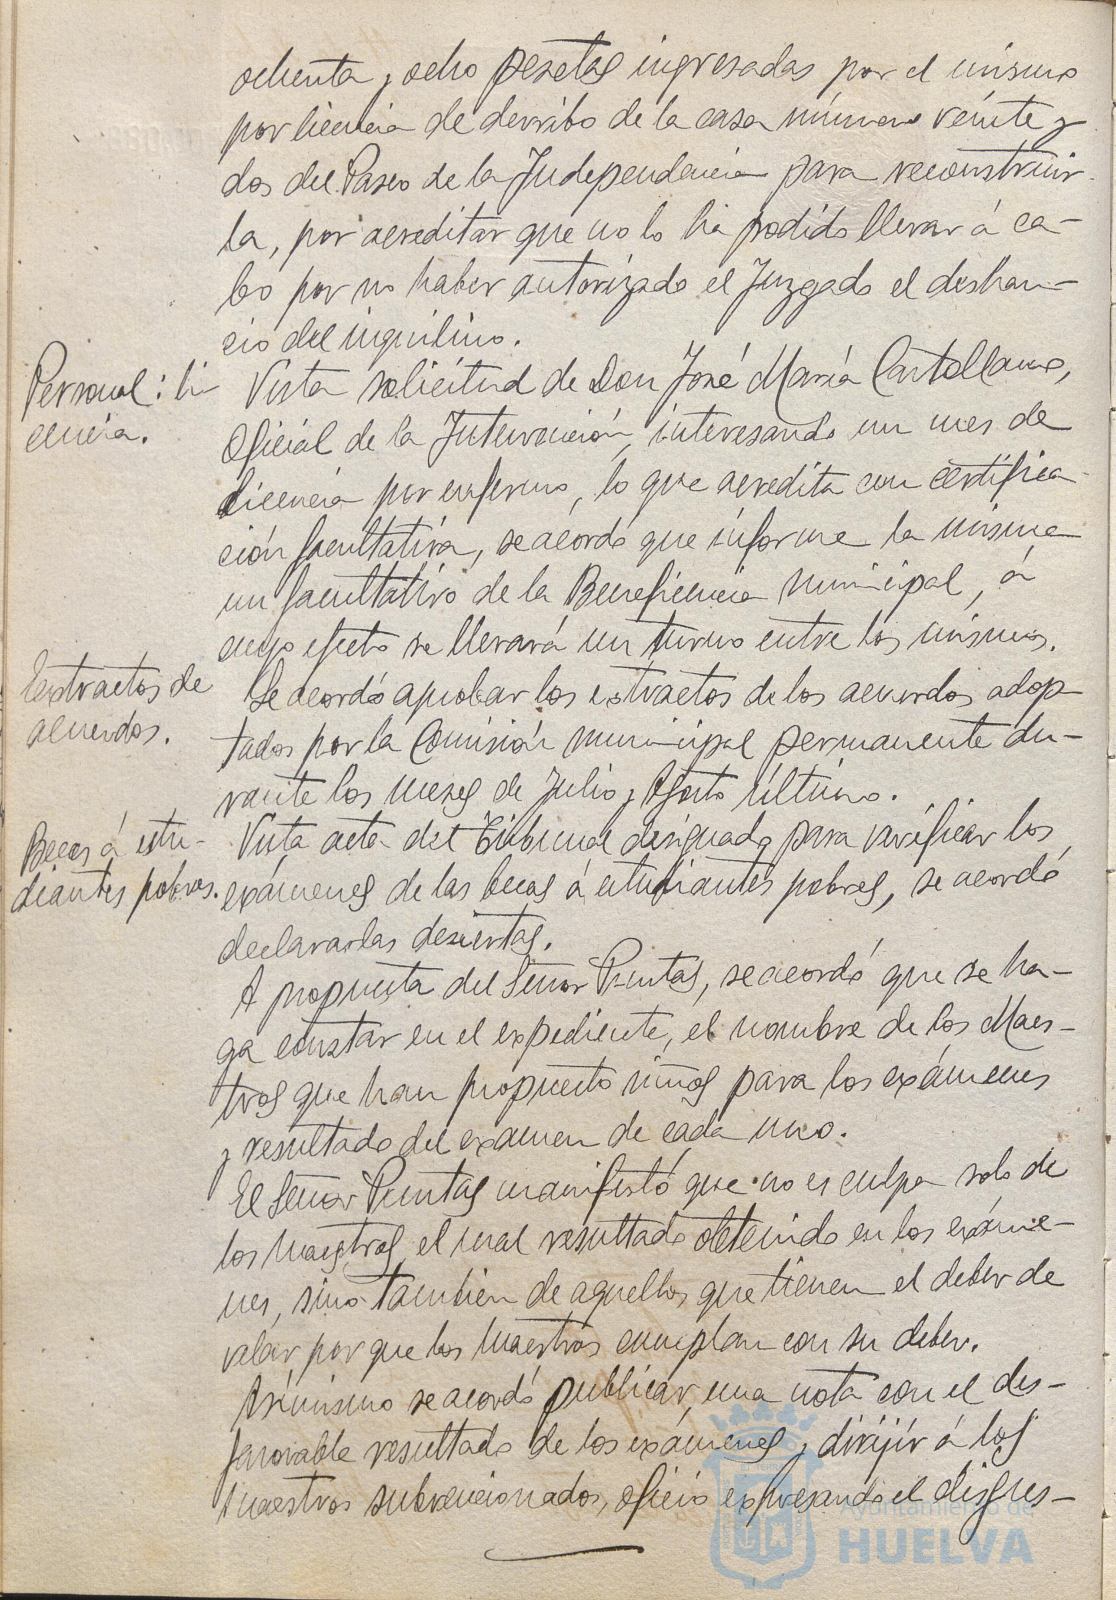 ochenta y ocho pesetas ingresadas por el mismo
por licencia de derribo de la casa número veinte y
dos del Paseo de la Independencia para reconstruir-
la, por acreditar que no lo ha podido llevar á ca-
bo por no haber autorizado el Juzgado el deshau-
cio del inquilino.
Personal: li
cencia.
Vista solicitud de Don José María Castellano,
Oficial de la Intervención, interesando un mes de
licencia por enfermo, lo que acredita con certifica-
ción facultativa, se acordó que informe la misma
un facultativo de la Beneficencia municipal, á
cuyo efecto se llevará un turno entre los mismos.
Extractos de
acuerdos.
Se acordó aprobar los extractos de los acuerdos adop-
tados por la Comisión municipal permanente du-
rante los meses de Julio y Agosto último.
Becas á estu-
diantes pobres.
Vista acta del Tribunal designado para verificar los
exámenes de las becas á estudiantes pobres, se acordó
declararlas desiertas.
A propuesta del Señor Puntas, se acordó que se ha-
ga constar en el expediente, el nombre de los Maes-
tros que han propuesto niños para los exámenes
y resultado del examen de cada uno.
El Señor Puntas manifestó que no es culpa solo de
los Maestros el mal resultado obtenido en los exáme-
nes, sino también de aquellos que tienen el deber de
velar por que los Maestros cumplan con su deber.
Asímismo se acordó publicar una nota con el des-
favorable resultado de los exámenes y dirijir á los
Maestros subvencionados, oficio expresando el disgus-
Ayuntamiento de
HUELVA